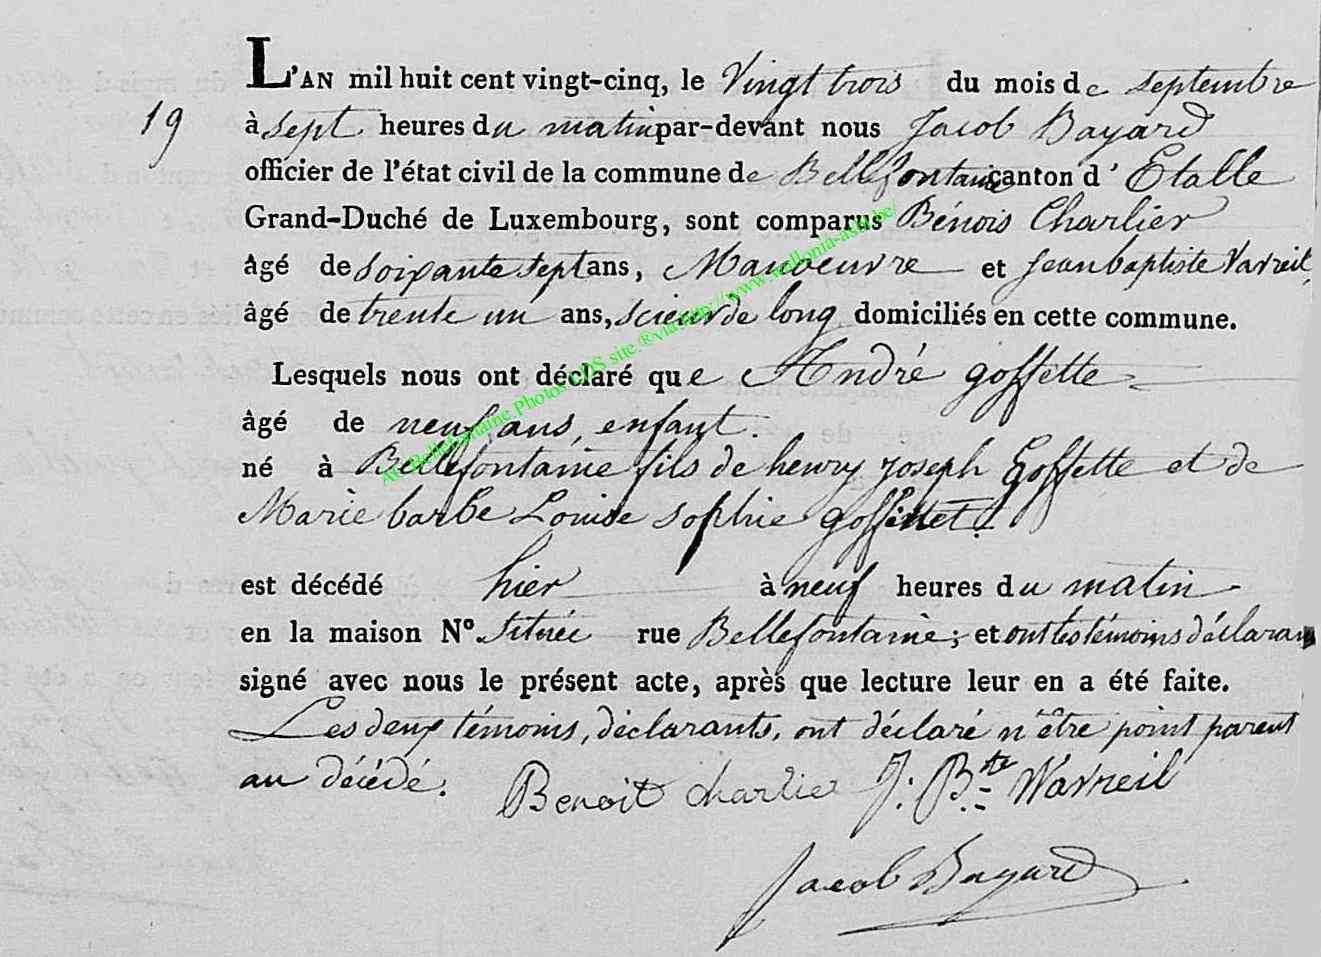 L'AN mil huit cent vingt-cinq, le Vingt trois du mois de septembre
19 à sept heures du matin par-devant nous Jacob Bayard
officier de l'état civil de la commune de Bellefontaine canton d'Etalle
Grand-Duché de Luxembourg, sont comparus Bénois Charlier
âgé de soixante sept ans, Manoeuvre et jean baptiste Vavreil,
âgé de trente un ans, scieur de long domiciliés en cette commune.
Lesquels nous ont déclaré que André goffette
âgé de neuf ans, enfant.
né à Bellefontaine fils de henry joseph Goffette et de
Marie barbe Louise sophie goffinet.
est décédé hier à neuf heures du matin
en la maison N° située rue Bellefontaine; et ont les témoins déclarans
signé avec nous le présent acte, après que lecture leur en a été faite.
Les deux témoins, déclarants, ont déclaré n'être point parent
au décédé. Benoit charlier J: Bte Wavreil
Jacob Bayard